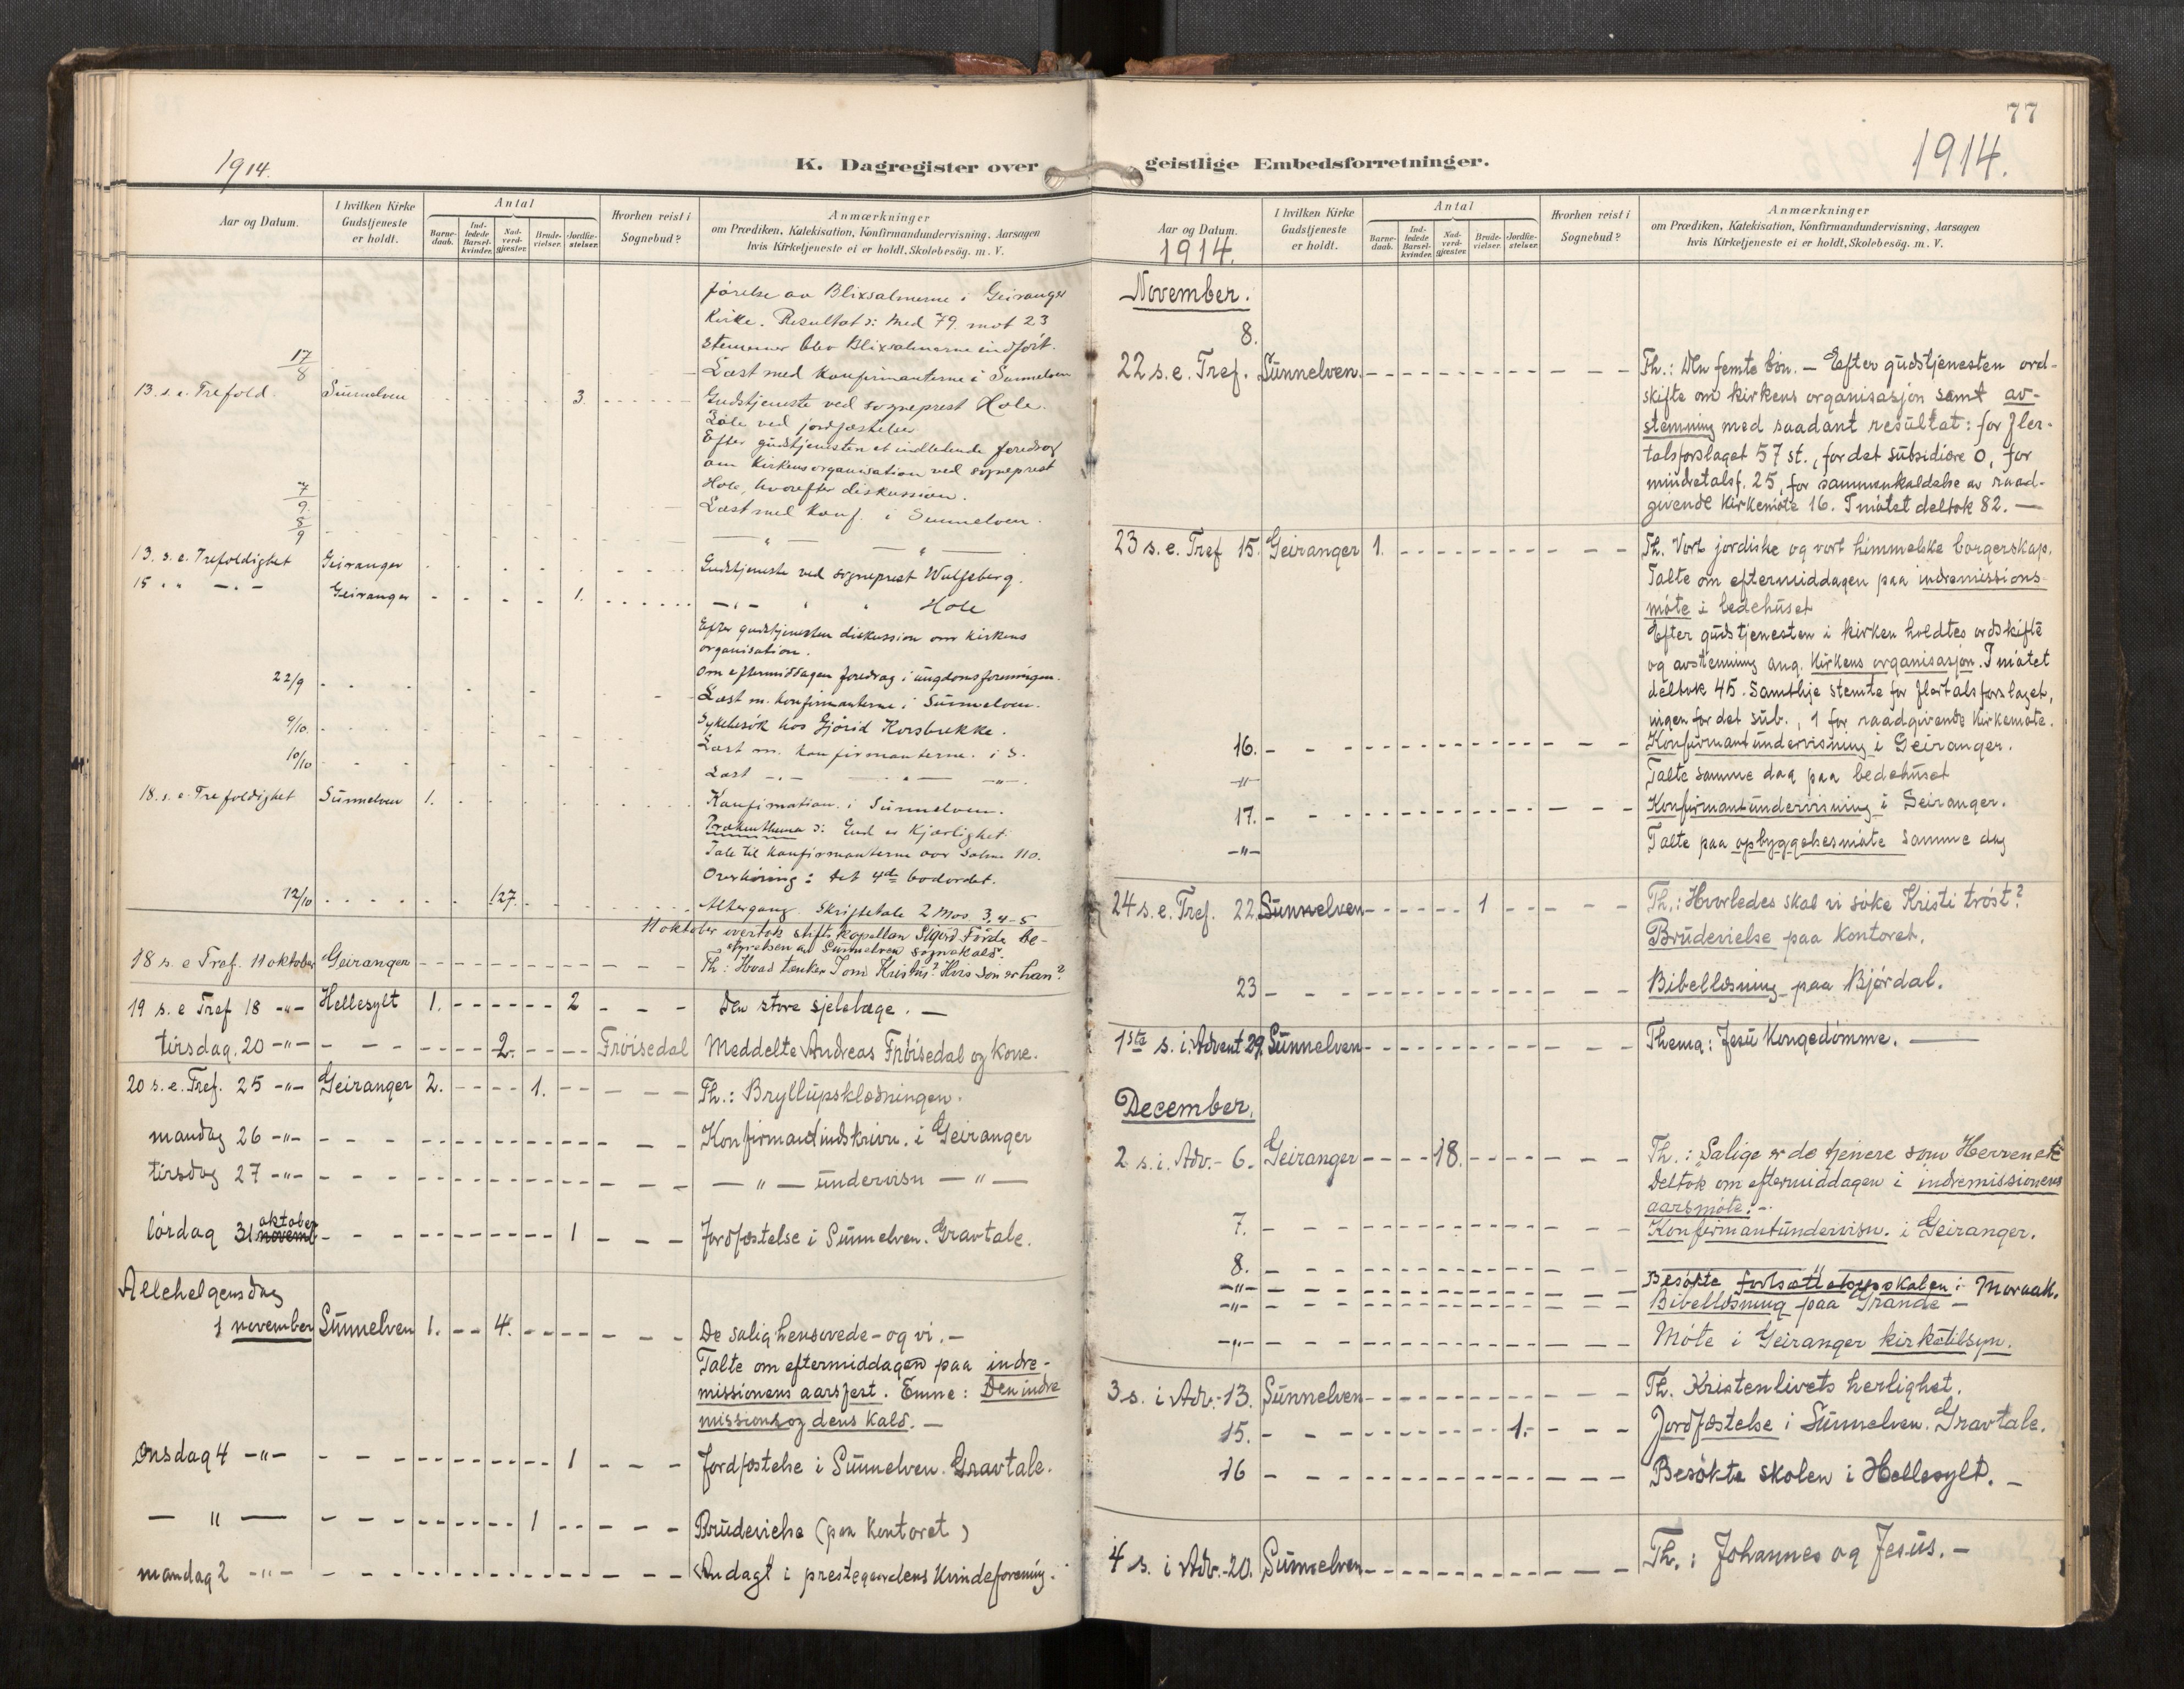 1914.
K. Dagregister over
Aar og Datum.
I hvilken Kirke Gudstjeneste er holdt.
Antal
Barnedaab.
Indledede Barselkvinder.
Nadverdgjæster.
Brudevielser.
Jordfæstelser.
Hvorhen reist i Sognebud?
Anmærkninger
om Prædiken, Katekisation, Konfirmandundervisning, Aarsagen
hvis Kirketjeneste ei er holdt, Skolebesög. m. V.
førelse av Blixsalmerne i Geiranger
Kirke. Resultat: Med 79 mot 23
stemmer blev Blixsalmerne indført.
17/8 Læst med konfirmanterne i Sunnelven
13. s. e. Trefold. Sunnelven 3. Gudstjeneste ved sogneprest Hole.
Tale ved jordfæstelse
Efter gudstjenesten et indledende foredrag
om Kirkens organisation ved sogneprest
Hole, hvorefter diskussion.
7/9. Læst med konf. i Sunnelven.
8/9 — " — — " —
13. s. e. Trefoldighet Geiranger Gudstjeneste ved sogneprest Wulfsberg.
15 " " — " — Geiranger 1. — " — " Hole
Efter gudstjenesten diskussion om kirkens
organisation.
Om eftermiddagen foredrag i ungdomsforeningen.
22/9 Læst m. konfirmanterne i Sunnelven.
Sykebesøk hos Gjørid Korsbrekke.
9/10. Læst m. konfirmanterne. i S.
10/10 Læst — " — — " — — " —.
18. s. e. Trefoldighet Sunnelven 1. Konfirmation. i Sunnelven.
Prækenthema: Gud er Kjærlighet.
Tale til konfirmanterne over Salme 110.
Overhøring: det 4de bodordet.
12/10 127. Altergang. Skriftetale 2 Mos. 3, 4-5
11 oktober overtok stiftskapellan Sigurd Förde be-
styrelsen av Sunnelven sognekald.
18 s. e Tref. 11 oktober Geiranger Th: Hvad tænker I om Kristus? Hvis søn er han?
19 s. e Tref 18 -"- Hellesylt 1. 2 Den store sjelelæge. —
tirsdag. 20 -"- 2. Frøisedal Meddelte Andreas Frøisedal og kone.
20 s. e. Tref. 25 -"- Geiranger 2. 1. Th.: Bryllupsklædningen.
mandag 26 -"- Konfirmantindskrivn. i Geiranger
tirsdag 27 -"- — " — undervisn — " —
lørdag 31 oktober novemb 1 Jordfæstelse i Sunnelven. Gravtale.
Allehelgensdag
1 november Sunnelven 1. 4. De salig hensovede - og vi. —
Talte om eftermiddagen paa indre-
missionens aarsfest. Emne: Den indre
mission og dens kald. —
Onsdag 4 -"- 1 Jordfæstelse i Sunnelven. Gravtale.
— " — 1 Brudevielse (paa kontoret)
mandag 2 -"- Andagt i prestegaardens Kvindeforening.
77
1914.
geistlige Embedsforretninger.
Aar og Datum.
1914.
I hvilken Kirke Gudstjeneste er holdt.
Antal
Barnedaab.
Indledede Barselkvinder.
Nadverdgjæster.
Brudevielser.
Jordfæstelser.
Hvorhen reist i Sognebud?
Anmærkninger
om Prædiken, Katekisation, Konfirmandundervisning, Aarsagen
hvis Kirketjeneste ei er holdt, Skolebesög. m. V.
November.
8.
22 s. e. Tref. Sunnelven. Th.: Den femte bøn. — Efter gudstjenesten ord-
skifte om kirkens organisasjon samt av-
stemning med saadant resultat: for fler-
talsforslaget 57 st., for det subsidiære 0, for
mindretalsf. 25, for sammenkaldelse av raad-
givende Kirkemøte 16. I møtet deltok 82. —
23 s. e. Tref 15. Geiranger 1. Th. Vort jordiske og vort himmelske borgerskap.
Talte om eftermiddagen paa indremissions-
møte i bedehuset
Efter gudstjenesten i kirken holdtes ordskifte
og avstemning ang. kirkens organisasjon. I møtet
deltok 45. Samtlige stemte for flertalsforslaget,
ingen for det sub., 1 for raadgivende kirkemøte.
16. Konfirmantundervisning i Geiranger.
-"- Talte samme dag paa bedehuset
17. Konfirmantundervisning i Geiranger.
-"- Talte paa opbyggelsesmøte samme dag
24 s. e. Tref. 22. Sunnelven 1 Th.: Hvorledes skal vi søke Kristi trøst?
Brudevielse paa kontoret.
23 Bibellæsning paa Bjørdal.
1ste s. i. Advent 29. Sunnelven Thema: Jesu Kongedømme. —
December.
2 s. i. Adv. - 6. Geiranger 18. Th.: "Salige er de tjenere som Herren etc
Deltok om eftermiddagen i indremissionens
aarsmøte. -
7. Konfirmantundervisn. i Geiranger.
8. — " —
-"- Besøkte fortsættelsesskolen i Meraak.
-"- Bibellæsning paa Grande —
-"- Møte i Geiranger kirketilsyn.
3 s. i Adv. - 13. Sunnelven Th. Kristenlivets herlighet.
15. 1. Jordfæstelse i Sunnelven. Gravtale.
16 Besøkte skolen i Hellesylt. —
4 s. i Adv. - 20. Sunnelven Th.: Johannes og Jesus. —